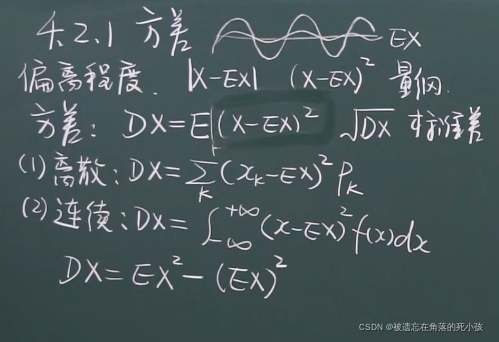 4.2.1 方差 EX
偏离程度. |X-EX| (X-EX)² 量纲.
方差: DX=E(X-EX)² √DX 标准差
(1) 离散: DX=∑ₖ(xₖ-EX)²Pₖ
(2) 连续: DX=∫₋∞⁺∞(x-EX)²f(x)dx
DX=EX²-(EX)²
CSDN @被遗忘在角落的死小孩